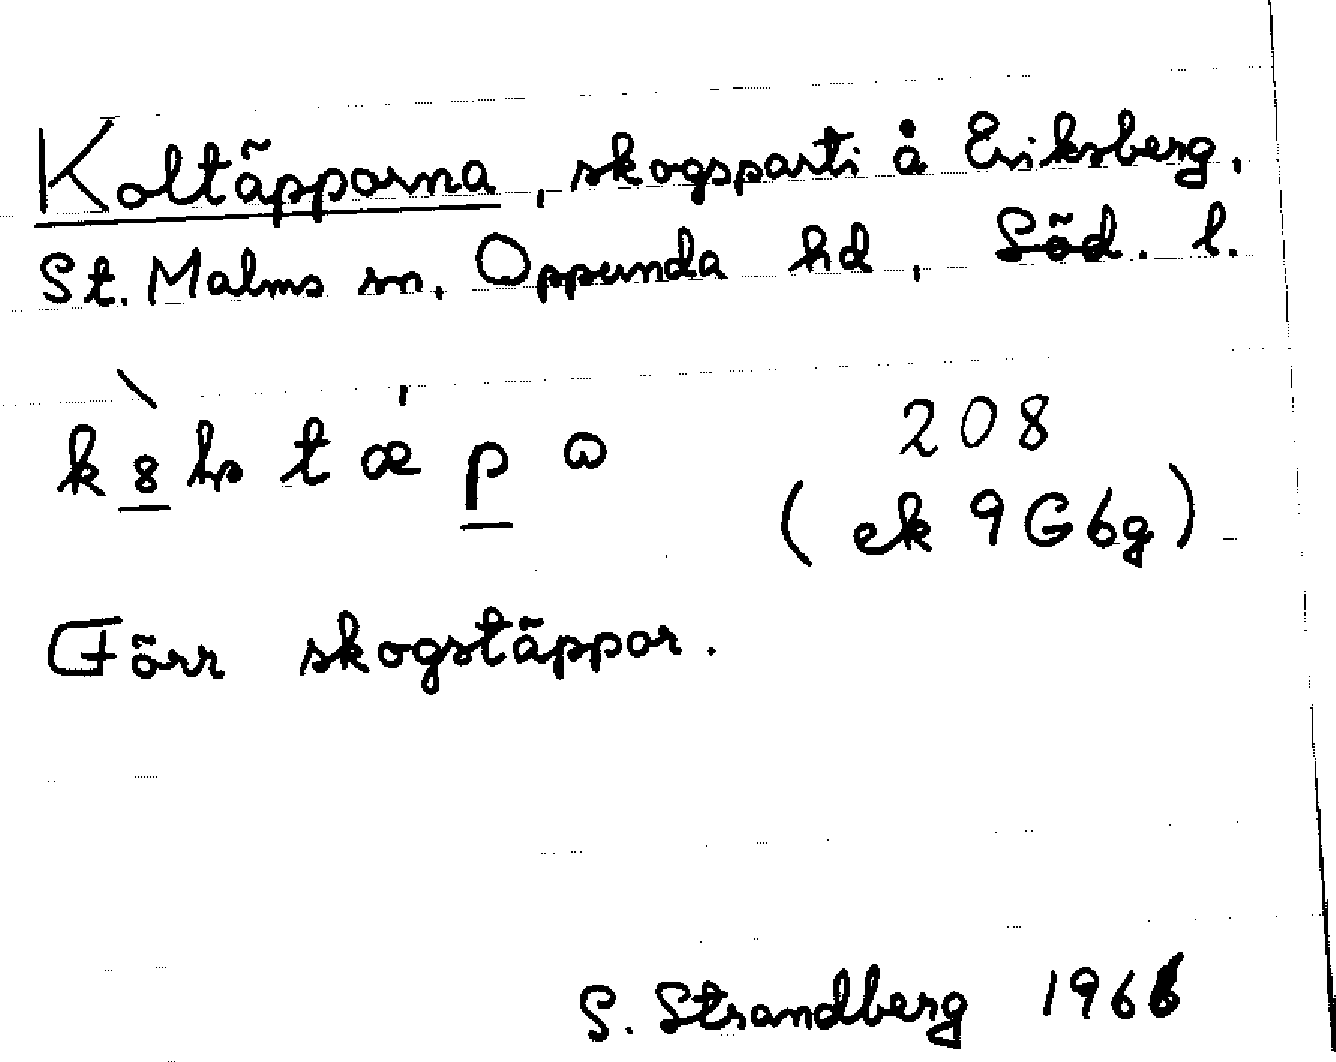 Koltäpporna, skogsparti å Eriksberg,
St. Malms sn, Oppunda hd, Söd. l.
208
(ek 9G6g)
Förr skogstäppor.
S. Strandberg 1966